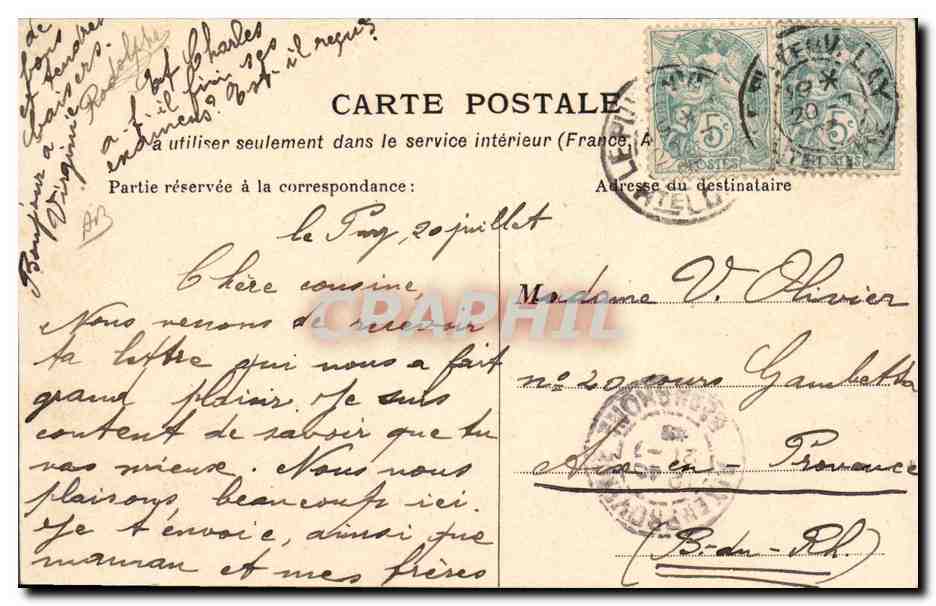 CARTE POSTALE
à utiliser seulement dans le service intérieur (France, A
Partie réservée à la correspondance :
Adresse du destinataire
le Puy, 20 juillet
Chère cousine,
Nous venons de recevoir
ta lettre qui nous a fait
grand plaisir. Je suis
content de savoir que tu
vas mieux. Nous nous
plaisons, beaucoup ici.
Je t'envoie, ainsi que
maman et mes frères
de
bons
et tendres
baisers.
Rodolphe
Bonjour à
Virginie
Et Charles
a-t-il fini ses
examens? Est-il reçu?
AB
Madame V. Olivier
no 20 cours Gambetta
Aix-en-Provence
(B.-du-Rh.)
5c
POSTES
5c
POSTES
LE PUY
20
CPAPHIL